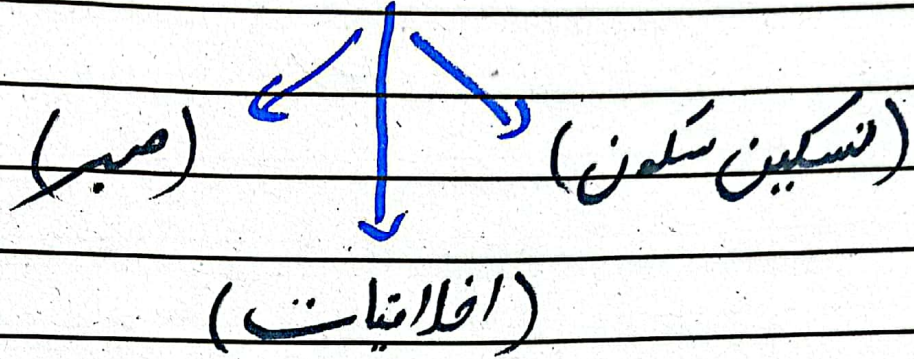 (تسکین سکون) (صبر)
(اخلاقیات)